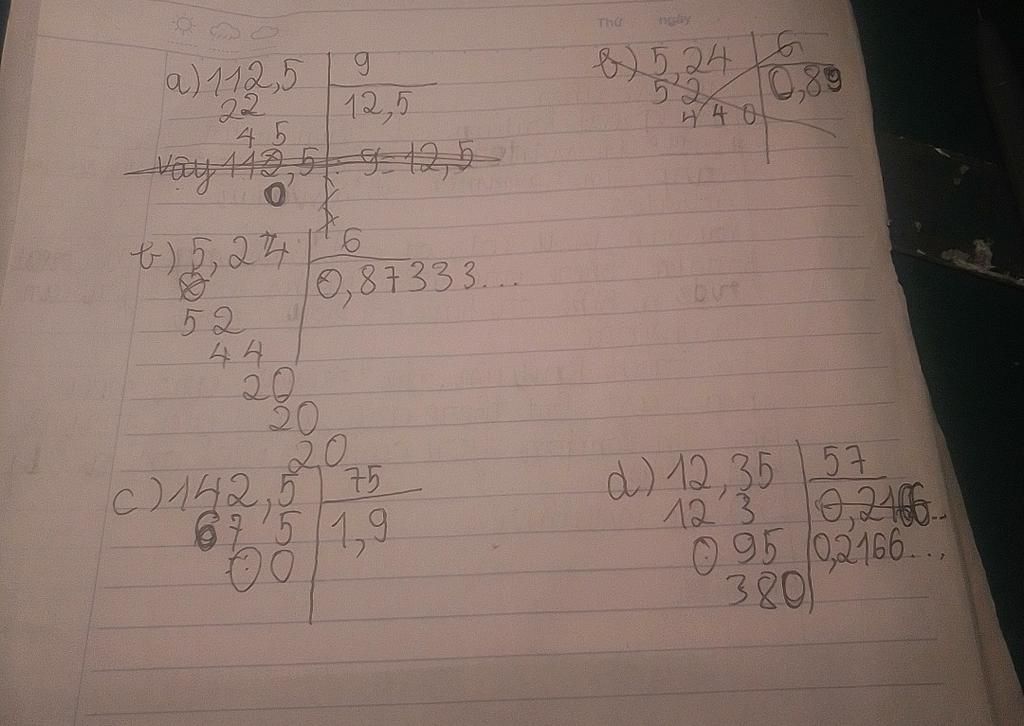 Thứ ngày
a) 112,5 | 9
22 | 12,5
45
vậy 112,5 : 9 = 12,5
0
b) 5,24 | 6
52 | 0,89
440
b) 5,24 | 6
0 | 0,87333...
52
44
20
20
20
c) 142,5 | 75
675 | 1,9
00
d) 12,35 | 57
123 | 0,2166...
095 | 0,2166...,
380